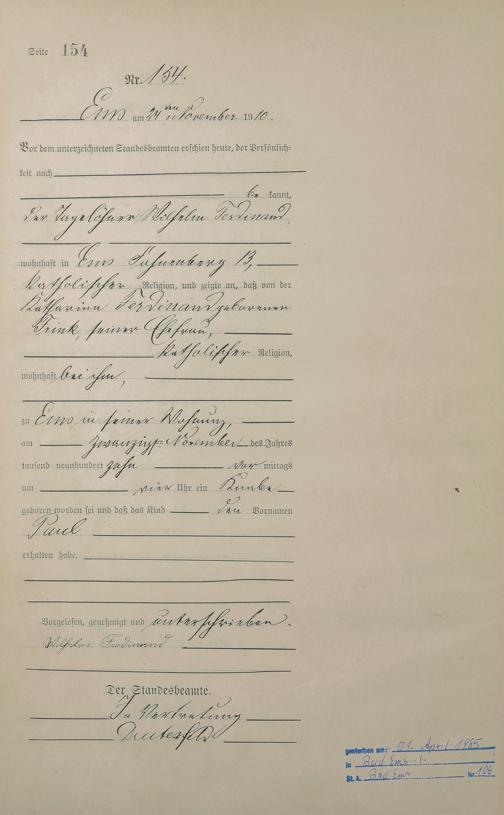 Seite 154
Nr. 154.
Ems am 24ten November 1910.
Vor dem unterzeichneten Standesbeamten erschien heute, der Persönlich-
keit nach
be kannt,
der Tagelöhner Wilhelm Ferdinand,
wohnhaft in Ems 13,
katholischer Religion, und zeigte an, daß von der
Katharina Ferdinand geborenen
Fink, seiner Ehefrau,
katholischer Religion,
wohnhaft bei ihm,
zu Ems in seiner Wohnung,
am November des Jahres
tausend neunhundert zehn vor mittags
um vier Uhr ein Knabe
geboren worden sei und daß das Kind den Vornamen
Paul
erhalten habe.
Vorgelesen, genehmigt und unterschrieben.
Wilhelm Ferdinand
Der Standesbeamte.
In Vertretung
gestorben am: 01. April 1985
in Bad Ems
St. A. Bad Ems Nr 106